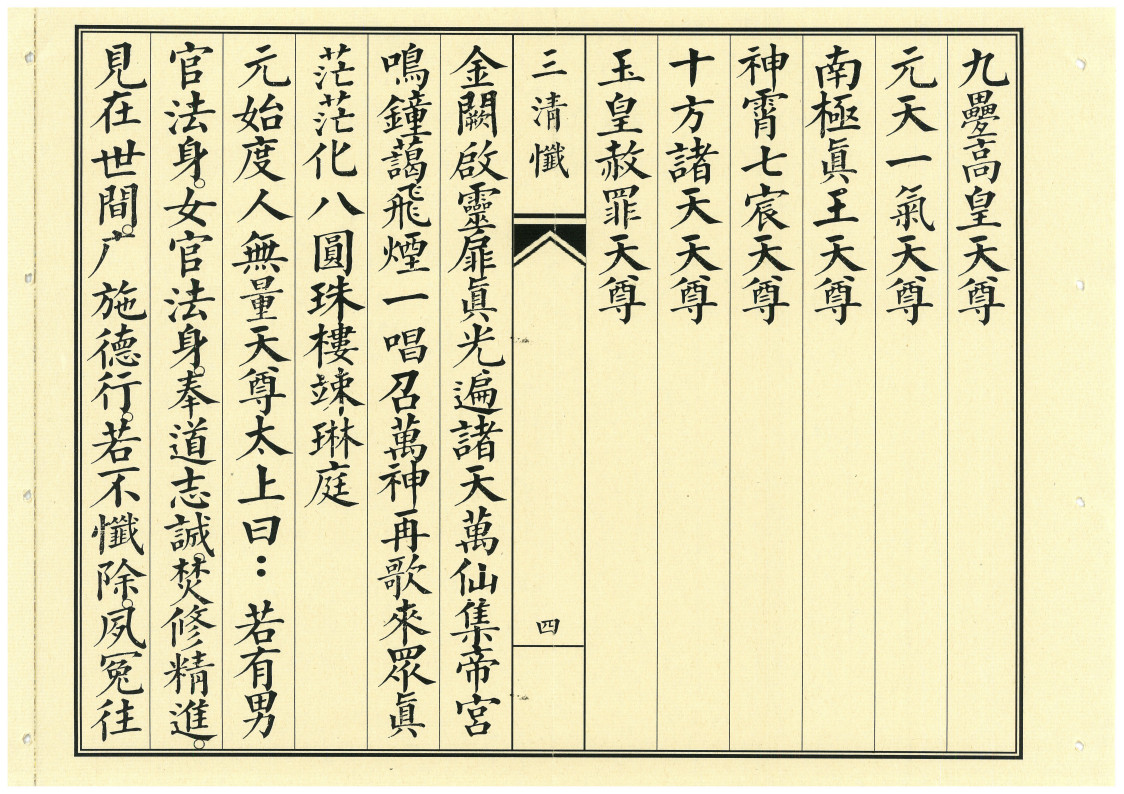 九壘高皇天尊
元天一氣天尊
南極眞王天尊
神霄七宸天尊
十方諸天天尊
玉皇赦罪天尊
三清懺
四
金闕啟靈扉眞光遍諸天萬仙集帝宮
鳴鐘藹飛煙一唱召萬神再歌來眾眞
茫茫化八圓珠樓竦琳庭
元始度人無量天尊太上曰：若有男
官法身。女官法身。奉道志誠。焚修精進。
見在世間。广施德行。若不懺除。夙冤往